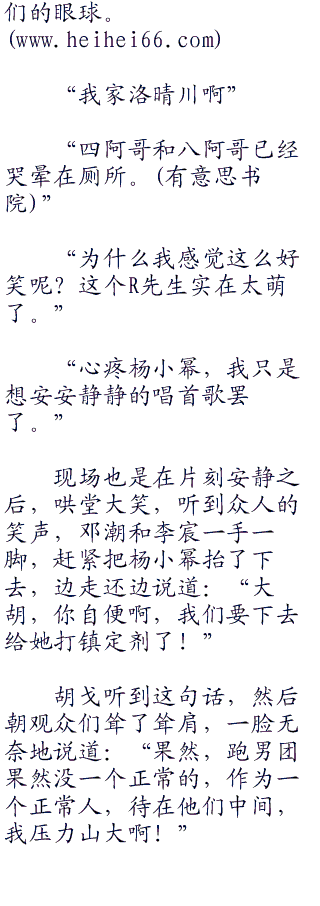 们的眼球。
(www.heihei66.com)
“我家洛晴川啊”
“四阿哥和八阿哥已经
哭晕在厕所。(有意思书
院)”
“为什么我感觉这么好
笑呢？这个R先生实在太萌
了。”
“心疼杨小幂，我只是
想安安静静的唱首歌罢
了。”
现场也是在片刻安静之
后，哄堂大笑，听到众人的
笑声，邓潮和李宸一手一
脚，赶紧把杨小幂抬了下
去，边走还边说道：“大
胡，你自便啊，我们要下去
给她打镇定剂了！”
胡戈听到这句话，然后
朝观众们耸了耸肩，一脸无
奈地说道：“果然，跑男团
果然没一个正常的，作为一
个正常人，待在他们中间，
我压力山大啊！”